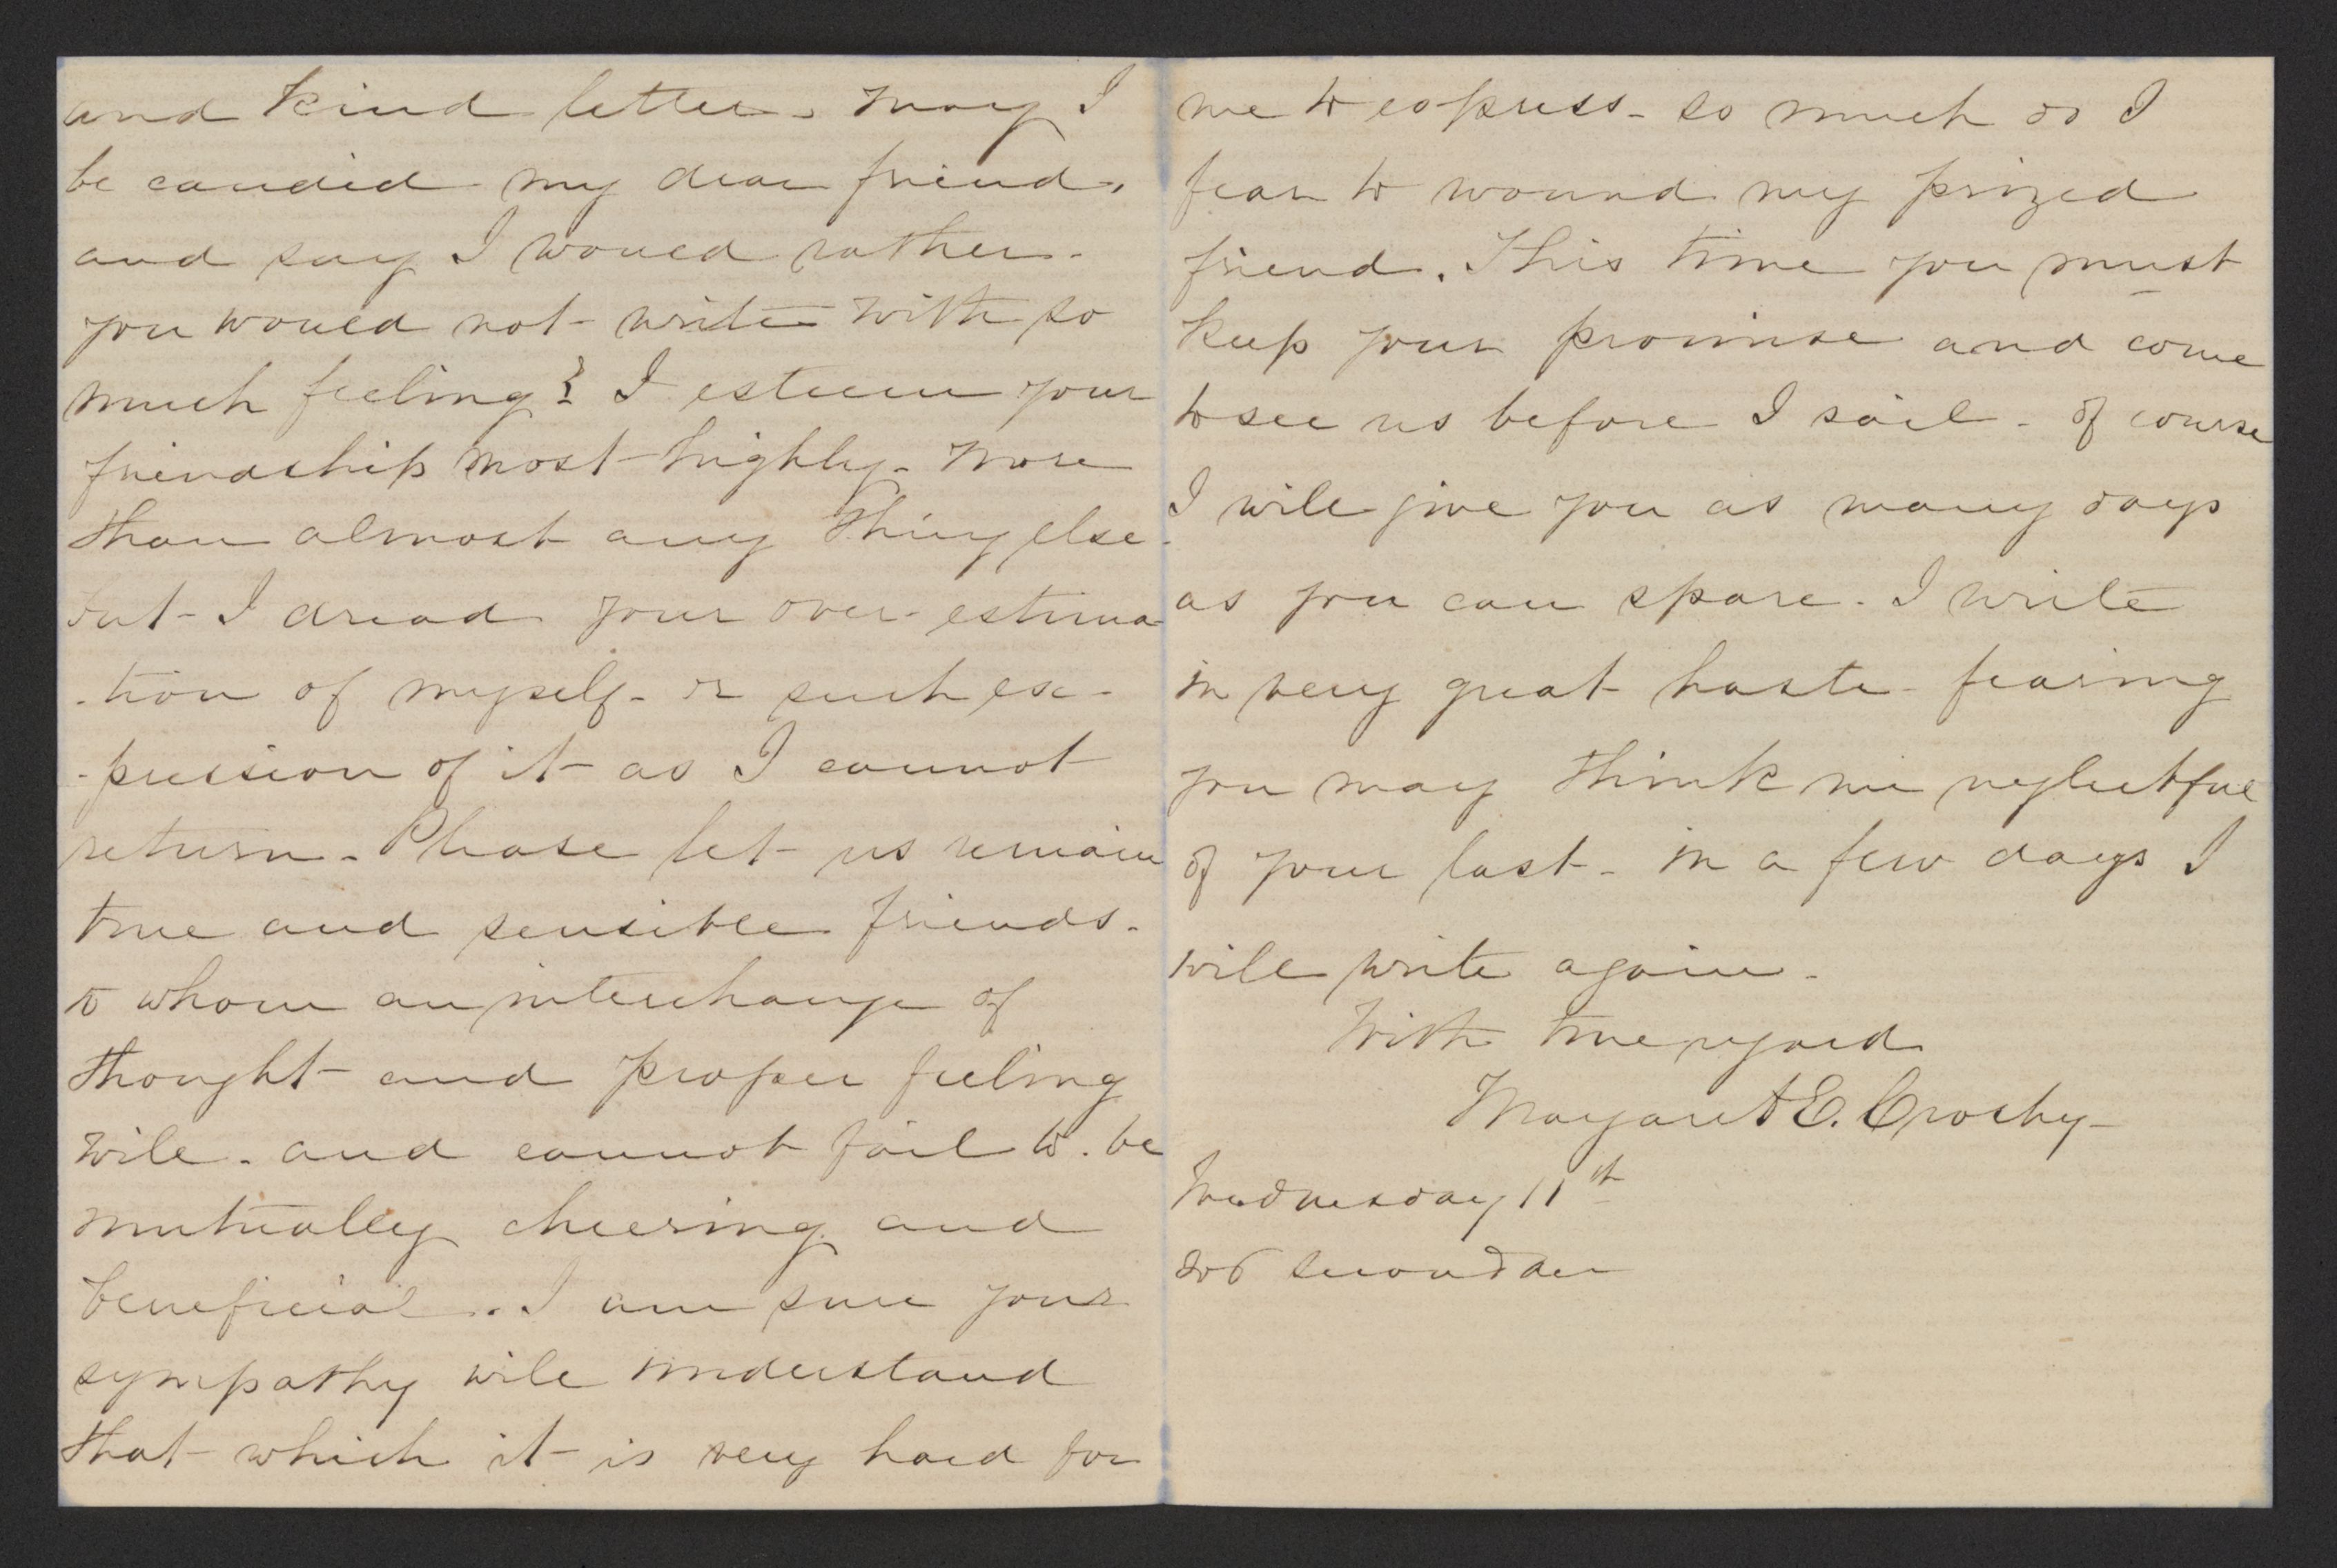 and kind letter. May I
be candid my dear friend,
and say I would rather
you would not write with so
much feeling? I esteem your
friendship most highly - more
than almost any thing else
but - I dread your over-estima
-tion of myself - or such ex-
-pression of it as I cannot
return. Please let us remain
true and sensible friends.
to whom an interchange of
thought and proper feeling
will - and cannot fail to be
mutually cheering and
beneficial. I am sure your
sympathy will understand
that which it is very hard for
me to express - so much do I
fear to wound my prized
friend. This time you must
keep your promise and come
to see us before I sail - of course
I will give you as many days
as you can spare. I write
in very great haste - fearing
you may think me neglectful
of your last - in a few days I
will write again.
With true regard
Margaret E. Crosby -
Wednesday 11th